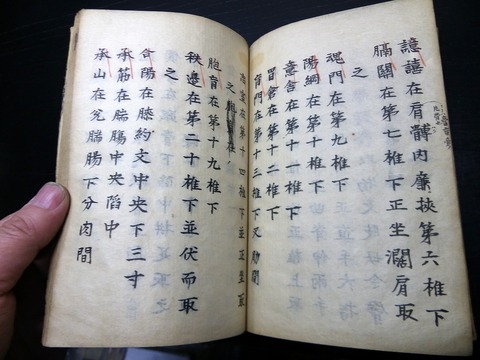 譩譆在肩髆内廉挾第六椎下
膈關在第七椎下正坐濶肩取
魂門在第九椎下
陽綱在第十椎下
意舍在第十一椎下
胃倉在第十二椎下
肓門在第十三椎下叉肋間
志室在第十四椎下並正坐取
之
胞肓在第十九椎下
秩邊在第二十椎下並伏而取
之
合陽在膝約文中央下三寸
承筋在腨腸中央陷中
承山在兊腨腸下分肉間